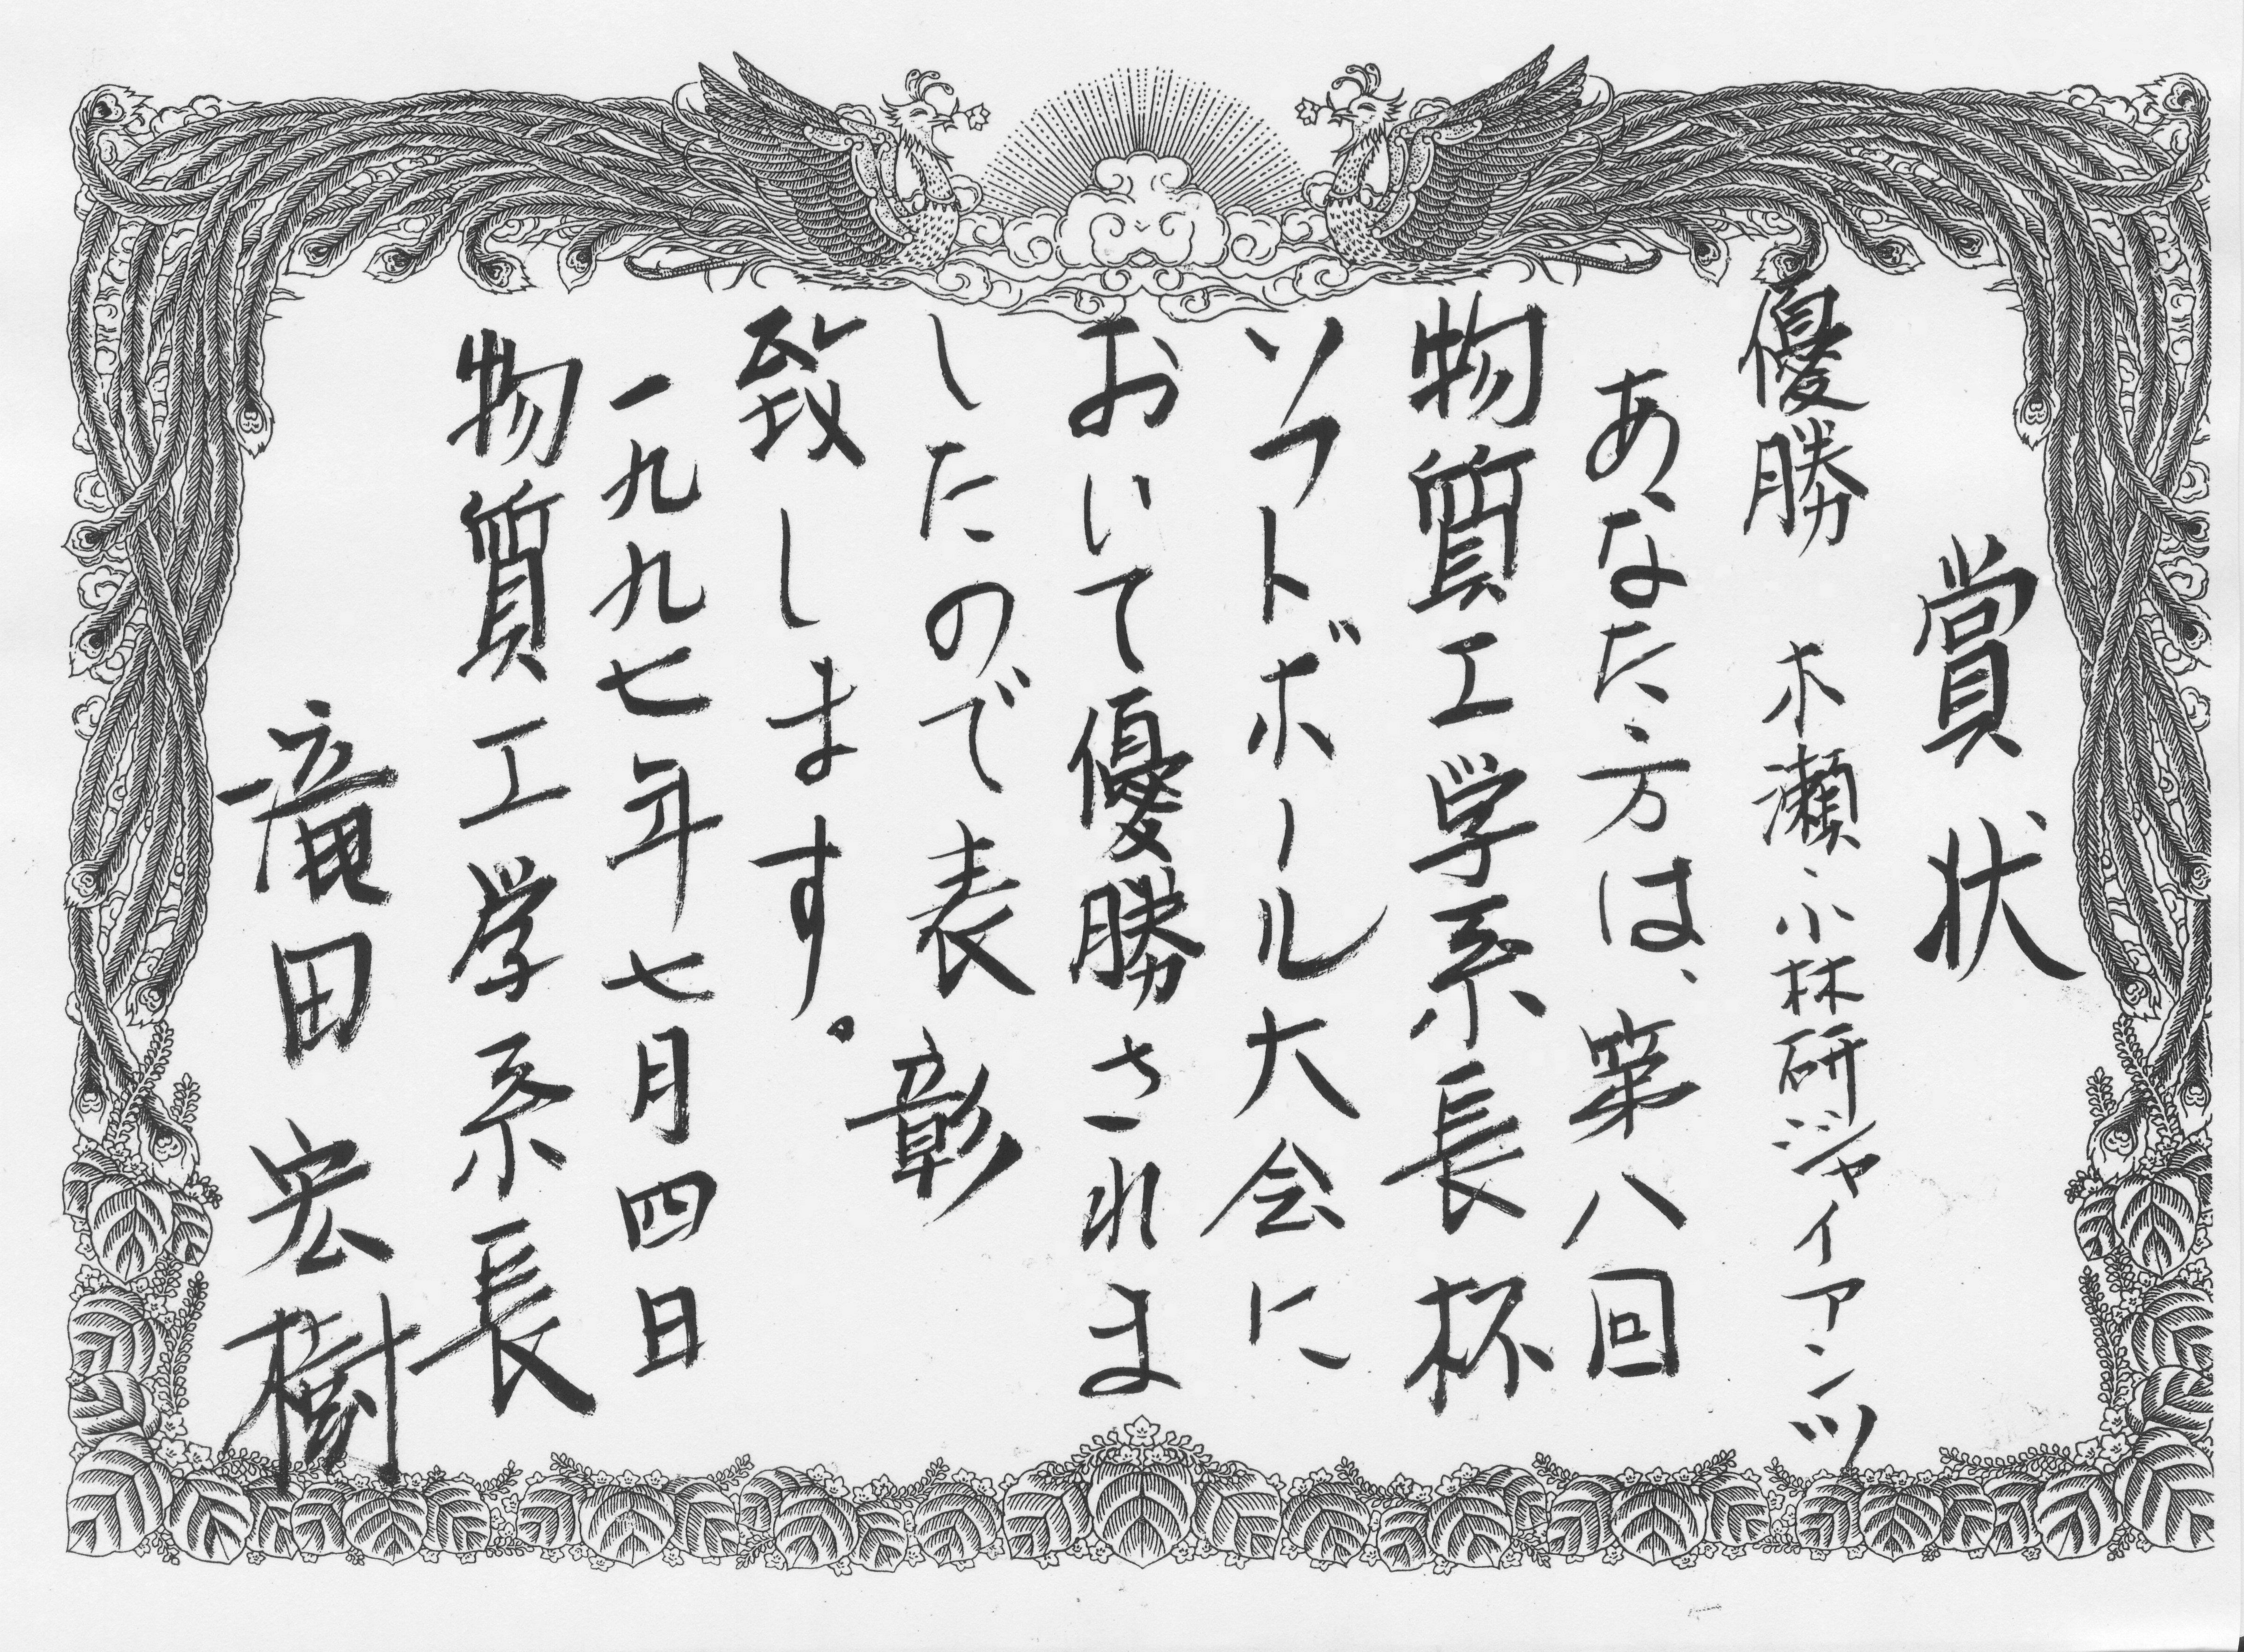 賞状
優勝 木瀬・小林研ジャイアンツ
あなた方は、第八回
物質工学系長杯
ソフトボール大会に
おいて優勝されま
したので表彰
致します。
一九九七年七月四日
物質工学系長
竜田宏樹